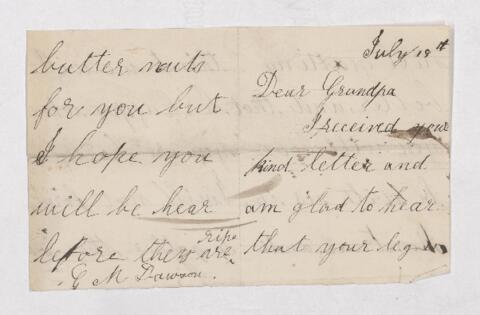 July 18th
Dear Grandpa
I received your
kind letter and
am glad to hear
that your leg is
butter nuts
for you but
I hope you
will be hear
before they are ripe
G M Dawson.